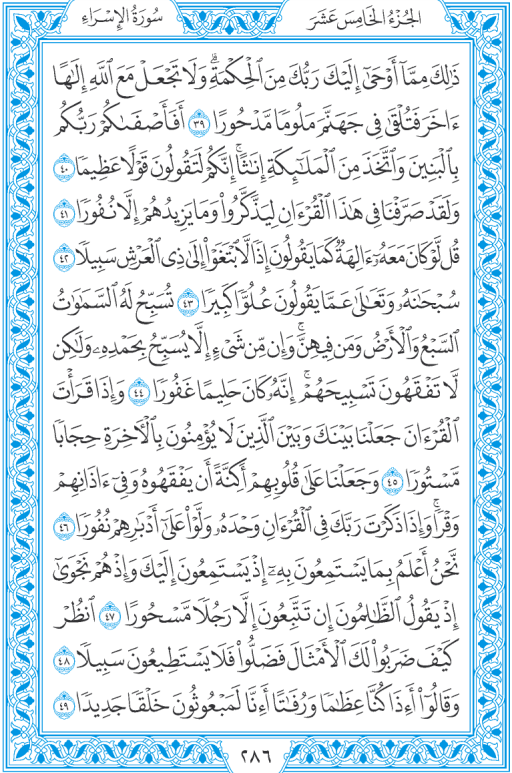 الجُزْءُ الخَامِسَ عَشَرَ
سُورَةُ الإِسْرَاءِ
ذَٰلِكَ مِمَّآ أَوْحَىٰٓ إِلَيْكَ رَبُّكَ مِنَ ٱلْحِكْمَةِۗ وَلَا تَجْعَلْ مَعَ ٱللَّهِ إِلَٰهًا
ءَاخَرَ فَتُلْقَىٰ فِى جَهَنَّمَ مَلُومًا مَّدْحُورًا ٣٩ أَفَأَصْفَىٰكُمْ رَبُّكُم
بِٱلْبَنِينَ وَٱتَّخَذَ مِنَ ٱلْمَلَٰٓئِكَةِ إِنَٰثًاۚ إِنَّكُمْ لَتَقُولُونَ قَوْلًا عَظِيمًا ٤٠
وَلَقَدْ صَرَّفْنَا فِى هَٰذَا ٱلْقُرْءَانِ لِيَذَّكَّرُوا۟ وَمَا يَزِيدُهُمْ إِلَّا نُفُورًا ٤١
قُل لَّوْ كَانَ مَعَهُۥٓ ءَالِهَةٌ كَمَا يَقُولُونَ إِذًا لَّٱبْتَغَوْا۟ إِلَىٰ ذِى ٱلْعَرْشِ سَبِيلًا ٤٢
سُبْحَٰنَهُۥ وَتَعَٰلَىٰ عَمَّا يَقُولُونَ عُلُوًّا كَبِيرًا ٤٣ تُسَبِّحُ لَهُ ٱلسَّمَٰوَٰتُ
ٱلسَّبْعُ وَٱلْأَرْضُ وَمَن فِيهِنَّۚ وَإِن مِّن شَىْءٍ إِلَّا يُسَبِّحُ بِحَمْدِهِۦ وَلَٰكِن
لَّا تَفْقَهُونَ تَسْبِيحَهُمْۗ إِنَّهُۥ كَانَ حَلِيمًا غَفُورًا ٤٤ وَإِذَا قَرَأْتَ
ٱلْقُرْءَانَ جَعَلْنَا بَيْنَكَ وَبَيْنَ ٱلَّذِينَ لَا يُؤْمِنُونَ بِٱلْءَاخِرَةِ حِجَابًا
مَّسْتُورًا ٤٥ وَجَعَلْنَا عَلَىٰ قُلُوبِهِمْ أَكِنَّةً أَن يَفْقَهُوهُ وَفِىٓ ءَاذَانِهِمْ
وَقْرًاۚ وَإِذَا ذَكَرْتَ رَبَّكَ فِى ٱلْقُرْءَانِ وَحْدَهُۥ وَلَّوْا۟ عَلَىٰٓ أَدْبَٰرِهِمْ نُفُورًا ٤٦
نَّحْنُ أَعْلَمُ بِمَا يَسْتَمِعُونَ بِهِۦٓ إِذْ يَسْتَمِعُونَ إِلَيْكَ وَإِذْ هُمْ نَجْوَىٰٓ
إِذْ يَقُولُ ٱلظَّٰلِمُونَ إِن تَتَّبِعُونَ إِلَّا رَجُلًا مَّسْحُورًا ٤٧ ٱنظُرْ
كَيْفَ ضَرَبُوا۟ لَكَ ٱلْأَمْثَالَ فَضَلُّوا۟ فَلَا يَسْتَطِيعُونَ سَبِيلًا ٤٨
وَقَالُوٓا۟ أَءِذَا كُنَّا عِظَٰمًا وَرُفَٰتًا أَءِنَّا لَمَبْعُوثُونَ خَلْقًا جَدِيدًا ٤٩
٢٨٦